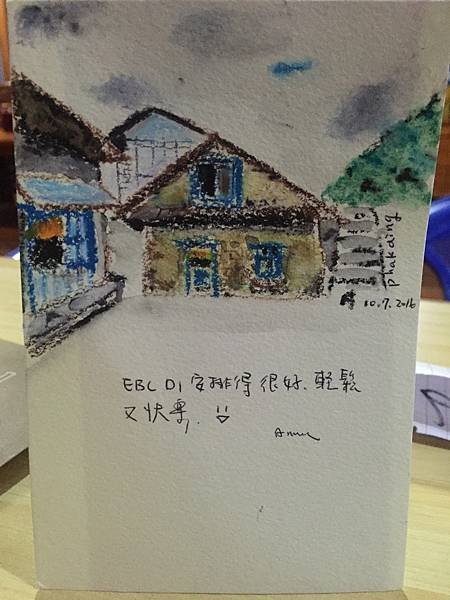 Phakding
10.7.2016
EBC D1 安排得很好. 輕鬆
又快樂.